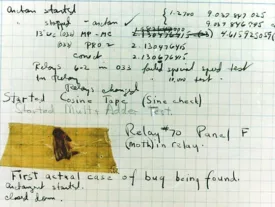 started
1.2700 9.037 847 025
stopped - 9.037 846
MP - MC 4.615925059
033 PRO 2 2.130476415
2.130676415
Relays 6-2 in 033 failed special speed test
In relay 10,000 test
Relays changed
Started Cosine Tape (Sine check)
Started Mult+ Adder Test.
Relay #70 Panel F
(moth) in relay.
First actual case of bug being found.
started.
closed down.